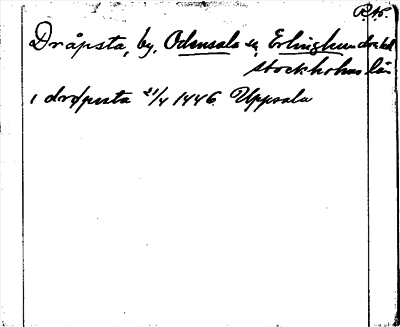 R. 15.
Dråpsta, by, Odensala sn, Erlinghundra hd
Stockholms län
i dropsta 21/4 1446. Uppsala